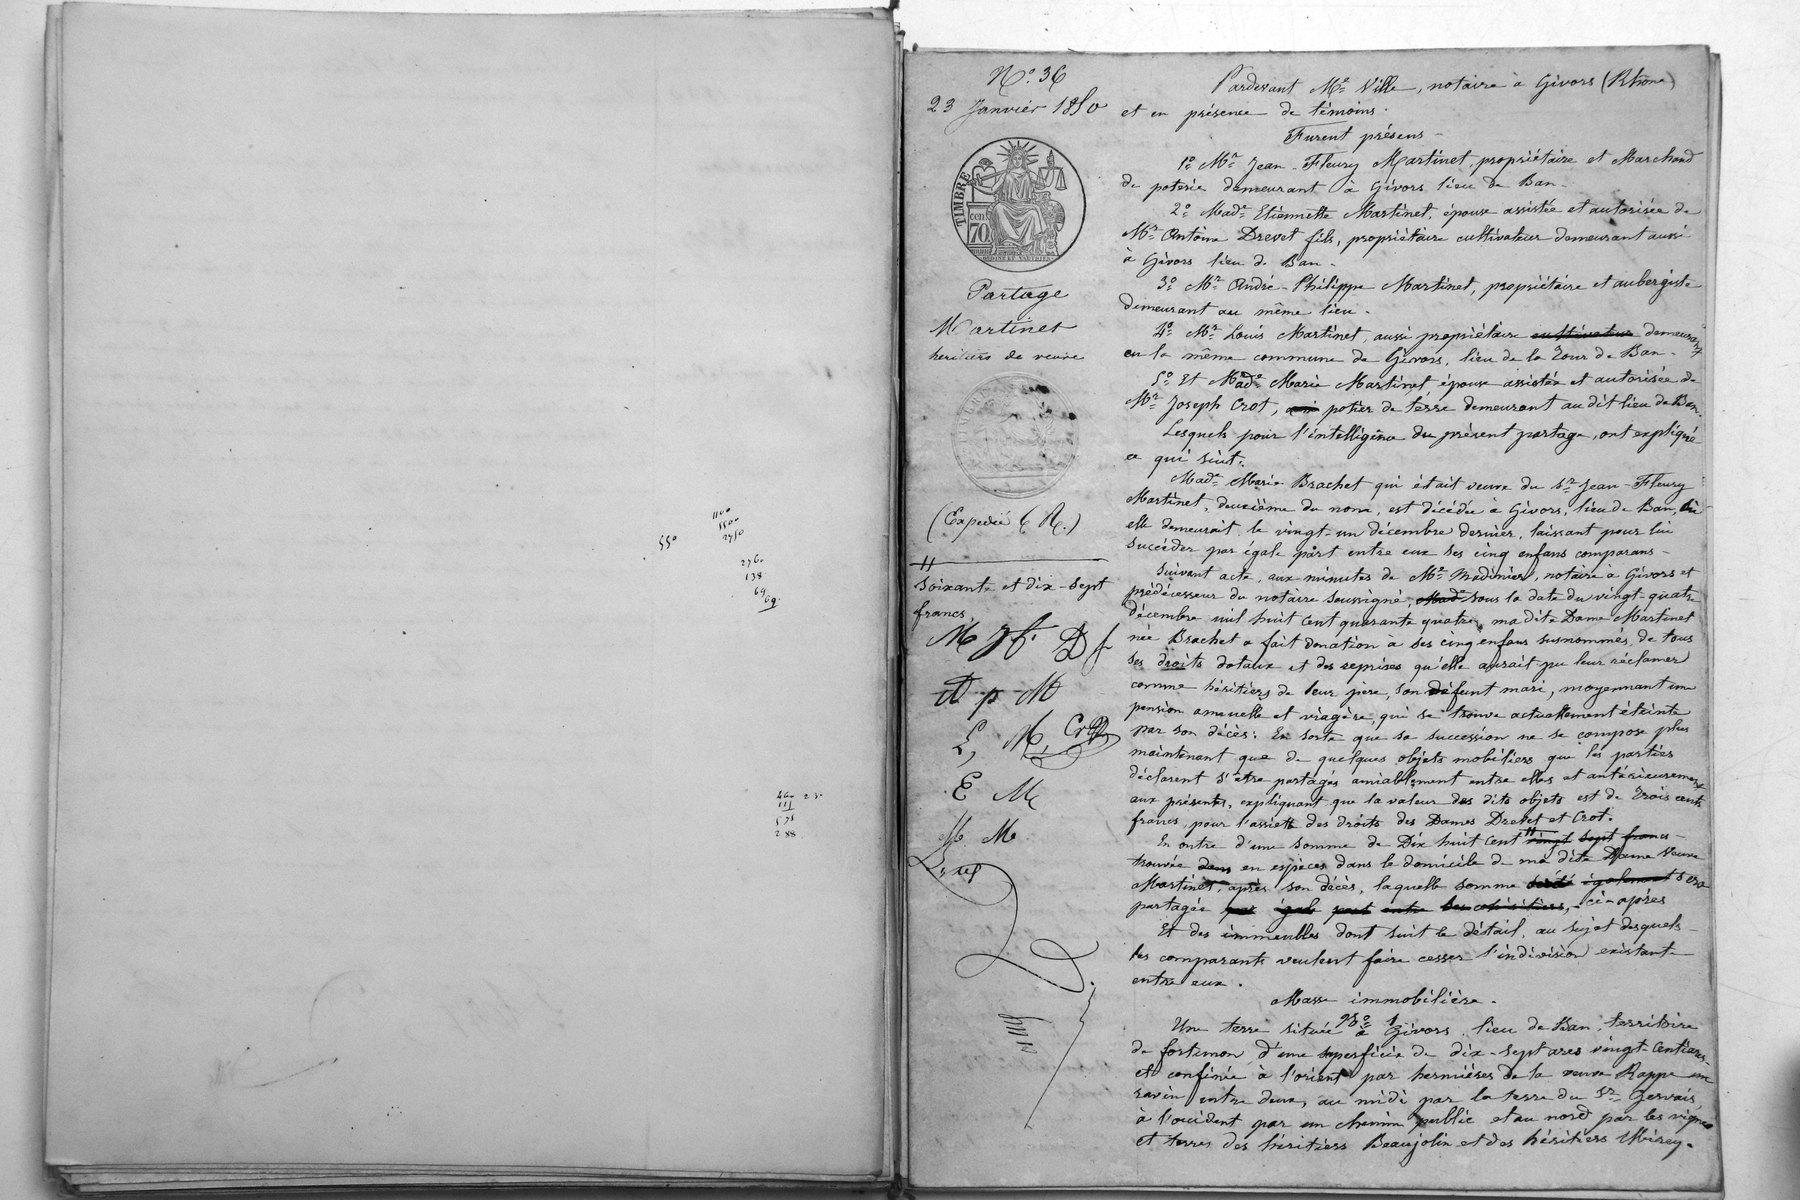 550
1100
5500
2750
276.
138
69
69.
460 230
115
575
288
N.º 36
23 Janvier 1850
TIMBRE
cen
70
Partage
Martinet
héritiers de veuve
(Expédié C R.)
soixante et dix-sept
francs
M J f. D f
A p M
L, M, Crot
E M
M M
Pardevant Me Ville, notaire à Givors (Rhône)
et en présence de témoins.
Furent présens
1º Mr Jean-Fleury Martinet, propriétaire et Marchand
de poterie demeurant à Givors lieu de Ban.
2º Made Etiennette Martinet, épouse assistée et autorisée de
Mr Antoine Drevet fils, propriétaire cultivateur demeurant aussi
à Givors lieu de Ban.
3º Mr André-Philippe Martinet, propriétaire et aubergiste
demeurant au même lieu.
4º Mr Louis Martinet, aussi propriétaire cultivateur demeurant
en la même commune de Givors, lieu de la Tour de Ban.
5º Et Made Marie Martinet épouse assistée et autorisée de
Mr Joseph Crot, potier de terre demeurant au dit lieu de Ban.
Lesquels pour l'intelligence du présent partage, ont expliqué
ce qui suit:
Made Marie Brachet qui était veuve du Sr Jean-Fleury
Martinet, deuxième du nom, est décédée à Givors, lieu de Ban, où
elle demeurait le vingt-un décembre dernier, laissant pour lui
succéder par égale part entre eux ses cinq enfans comparans
Suivant acte, aux minutes de Me Madinier, notaire à Givors et
prédécesseur du notaire soussigné, Mad sous la date du vingt-quatre
décembre mil huit cent quarante quatre, ma dite Dame Martinet
née Brachet a fait donation à ses cinq enfans susnommés, de tous
ses droits dotaux et des reprises qu'elle aurait pu leur réclamer
comme héritiers de leur père, son défunt mari, moyennant une
pension annuelle et viagère, qui se trouve actuellement éteinte
par son décès: En sorte que sa succession ne se compose plus
maintenant que de quelques objets mobiliers que les parties
déclarent s'être partagés amiablement entre elles et antérieurement
aux présentes, expliquant que la valeur des dits objets est de Trois cents
francs, pour l'assiette des droits des Dames Drevet et Crot.
En outre d'une somme de Dix huit cent vingt sept francs
trouvée dans en espèces dans le domicile de ma dite Dame Veuve
Martinet, après son décès, laquelle somme également sera
partagée par égale part entre les cohéritiers, ci-après
Et des immeubles dont suit le détail, au sujet desquels
les comparants veulent faire cesser l'indivision existante
entre eux.
Masse immobilière.
Une terre située à Givors, lieu de Ban, territoire
de fortunon d'une superficie de dix-sept ares vingt centiares
et confinée à l'orient par hermières de la veuve Rappe un
ravin entre deux, au midi par la terre du Sr Gervais,
à l'occident par un chemin public et au nord par les vignes
et terres des héritiers Beaujolin et des héritiers Mirey.